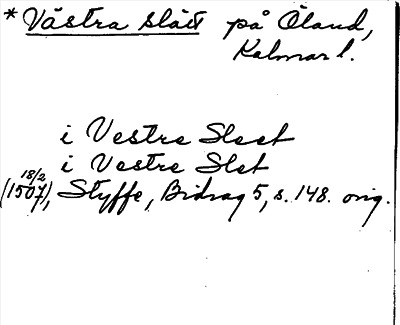 *Västra slätt på Öland,
Kalmar l.
i Vestre Sleet
i Vestre Slet
18/2
(1507), Styffe, Bidrag 5, s. 148. orig.